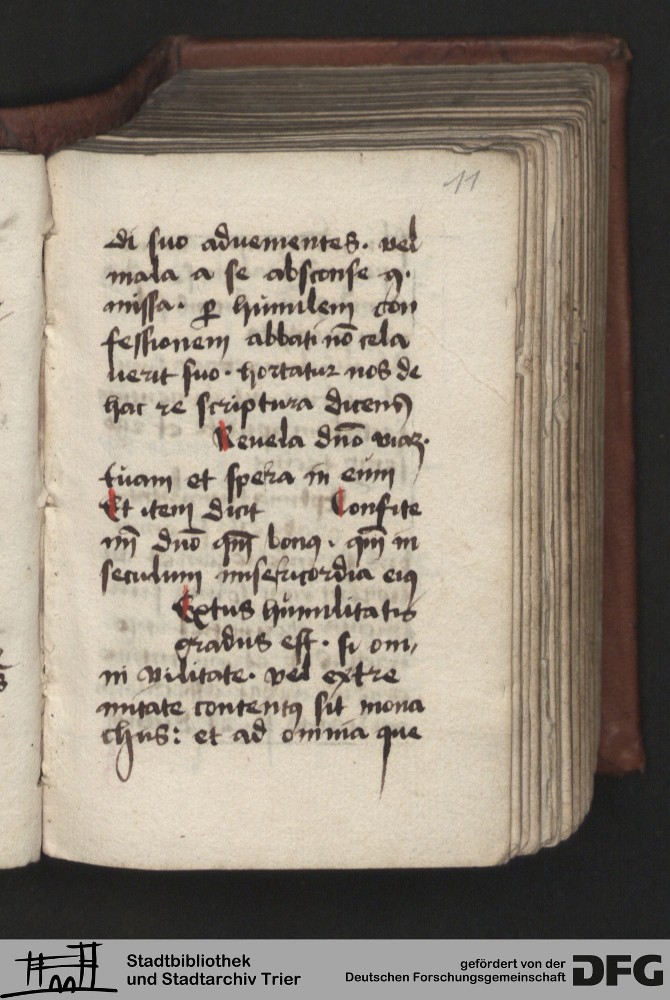 11
di suo aduenientes. vel
mala a se absconse 9.
missa. ꝑ humilem con
fessionem abbati nō cela
uerit suo. hortatur nos de
hac re scriptura dicens
Reuela dño viaꝫ.
tuam et spera in eum
Et item dicit Confite
mī dño qm̄ bonꝰ. qm̄ in
seculum misericordia eiꝰ
Extus humilitatis
gradus est. si om,
ni vilitate. vel extre
mitate contentꝰ sit mona
chus: et ad omnia que
Stadtbibliothek
und Stadtarchiv Trier
gefördert von der
Deutschen Forschungsgemeinschaft
DFG